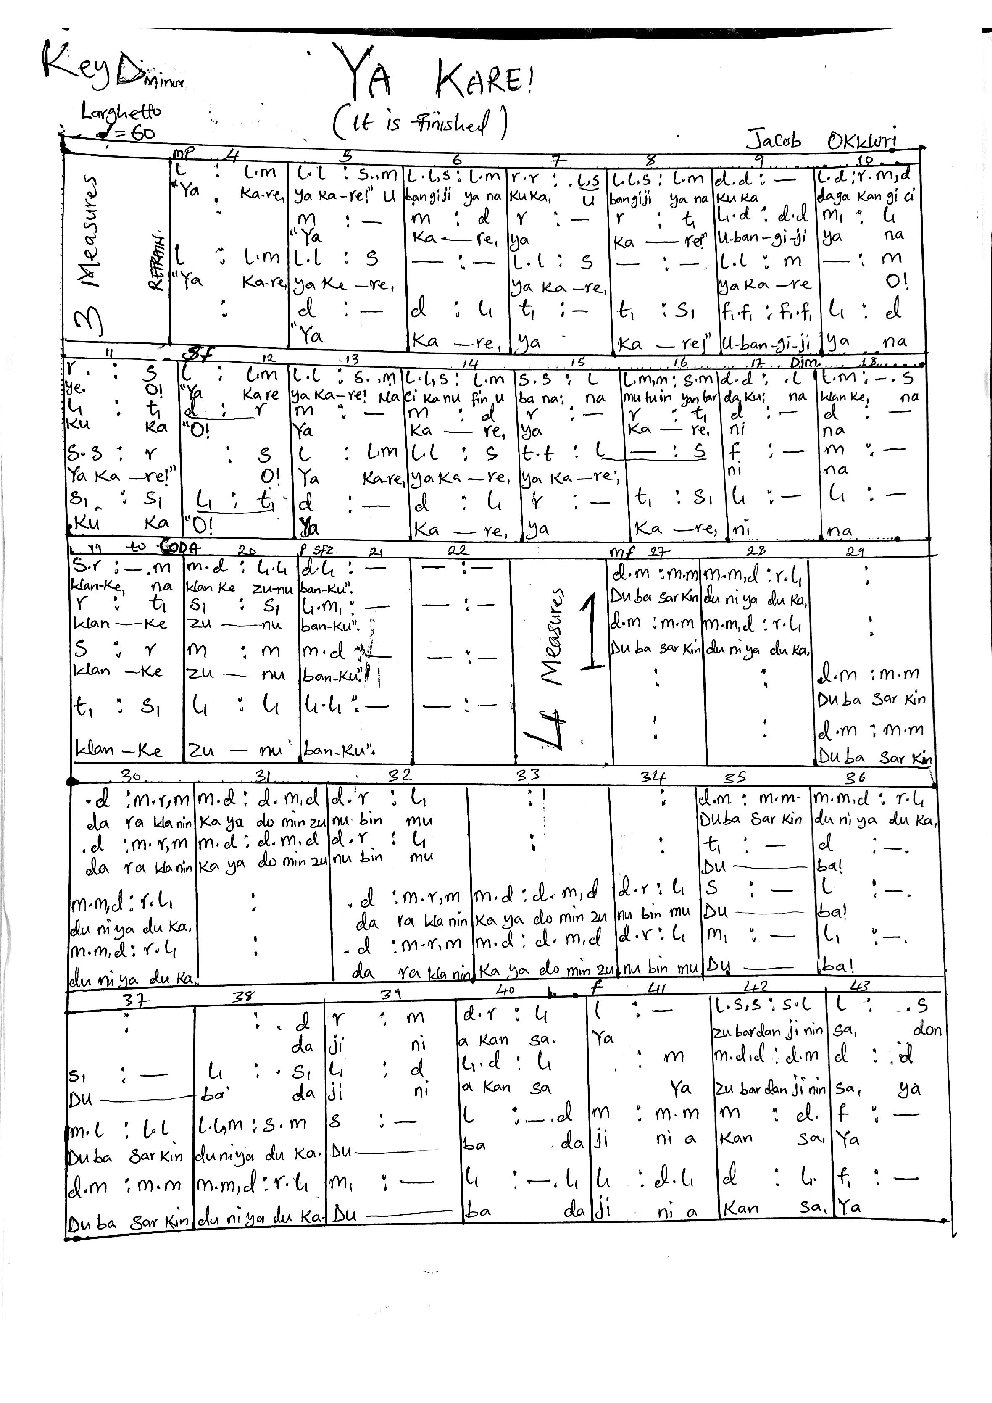 Key D minor
YA KARE!
Larghetto
♩=60
(It is finished)
Jacob OKKWRI
mp 4 5 6 7 8 9 10
3 Measures
REFRAIN.
l : l.m l.l : s..m l.l,s : l.m r.r : .l,s l.l.s : l.m d.d : — l.d : r.m,d
"Ya Ka-re, ya ka-re!" U bangiji ya na kuka, U bangiji ya na kuka daga kan gi ci
m : — m : d r : — r : t₁ l₁.d : d.d m₁ : l₁
"Ya Ka — re, ya Ka — re!" U-ban-gi-ji ya na
l : l.m l.l : s — : — l.l : s — : — l.l : m — : m
"Ya Ka-re, ya Ka-re, ya Ka-re, ya Ka-re O!
: d : — d : l₁ t₁ : — t₁ : s₁ f₁.f₁ : f₁.f₁ l₁ : d
"Ya Ka — re, ya Ka — re!" U-ban-gi-ji ya na
11 Sf 12 13 14 15 16 17 Dim 18
r. : s l : l.m l.l : s..m l.l,s : l.m s.s : l l.m,m : s.m d.d : .l l.m : —.s
ye. O! "Ya Ka re ya Ka-re! Na ci Ka nu fin, u ba na; na mu tu in yan bar da ku; na klan ke, na
l₁ : t₁ d : r m : — m : d r : — r : t₁ d : — d : —
Ku Ka "O! Ya Ka — re, ya Ka — re, ni na
s.s : r : s l : l.m l.l : s t.t : l — : s f : — m : —
Ya Ka — re!" O! Ya Ka-re, ya Ka — re, ya Ka — re; ni na
s₁ : s₁ l₁ : t₁ d : — d : l₁ r : — t₁ : s₁ l₁ : — l₁ : —
Ku Ka "O! Ya Ka — re, ya Ka — re, ni na
19 to CODA 20 p sfz 21 22 mf 27 28 29
s.r : —.m m.d : l₁.l₁ d.l₁ : — — : — d.m : m.m m.m,d : r.l₁ :
klan-Ke, na klan Ke zu-nu ban-Ku". Du ba Sar Kin du ni ya du Ka,
r : t₁ s₁ : s₁ l₁.m₁ : — — : — d.m : m.m m.m,d : r.l₁ :
klan — Ke zu — nu ban-Ku". Du ba Sar Kin du ni ya du Ka,
4 Measures 1
s : r m : m m.d : — — : — : : d.m : m.m
klan — Ke zu — nu ban-Ku"! Du ba Sar Kin
t₁ : s₁ l₁ : l₁ l₁.l₁ : — — : — : : d.m : m.m
klan — Ke zu — nu ban-Ku". Du ba Sar Kin
30 31 32 33 34 35 36
.d : m.r,m m.d : d.m,d d.r : l₁ : : d.m : m.m m.m,d : r.l₁
da ra kla nin Ka ya do min zu nu bin mu Du ba Sar Kin du ni ya du Ka,
.d : m.r,m m.d : d.m.d d.r : l₁ : : t₁ : — d : —.
da ra kla nin Ka ya do min zu nu bin mu Du — ba!
m.m,d : r.l₁ : .d : m.r,m m.d : d.m,d d.r : l₁ s : — l : —.
du ni ya du Ka, da ra kla nin Ka ya do min zu nu bin mu Du — ba!
m.m,d : r.l₁ : .d : m.r,m m.d : d.m,d d.r : l₁ m₁ : — l₁ : —.
du ni ya du Ka. da ra kla nin Ka ya do min zu nu bin mu Du — ba!
37 38 39 40 f 41 42 43
: : .d r : m d.r : l₁ l : — l.s,s : s.l l : .s
da ji ni a Kan sa. Ya zu bar dan ji nin sa, don
s₁ : — l₁ : .s₁ l₁ : d l₁.d : l₁ : m m.d,d : d.m d : .d
Du — ba' da ji ni a Kan sa Ya zu bar dan ji nin sa, ya
m.l : l.l l.l,m : s.m s : — l : —.d m : m.m m : d. f : —
Du ba Sar Kin du ni ya du Ka. Du — ba da ji ni a Kan sa, Ya
d.m : m.m m.m,d : r.l₁ m₁ : — l₁ : —.l₁ l₁ : d.l₁ d : l₁. f₁ : —
Du ba Sar Kin du ni ya du Ka. Du — ba da ji ni a Kan sa, Ya